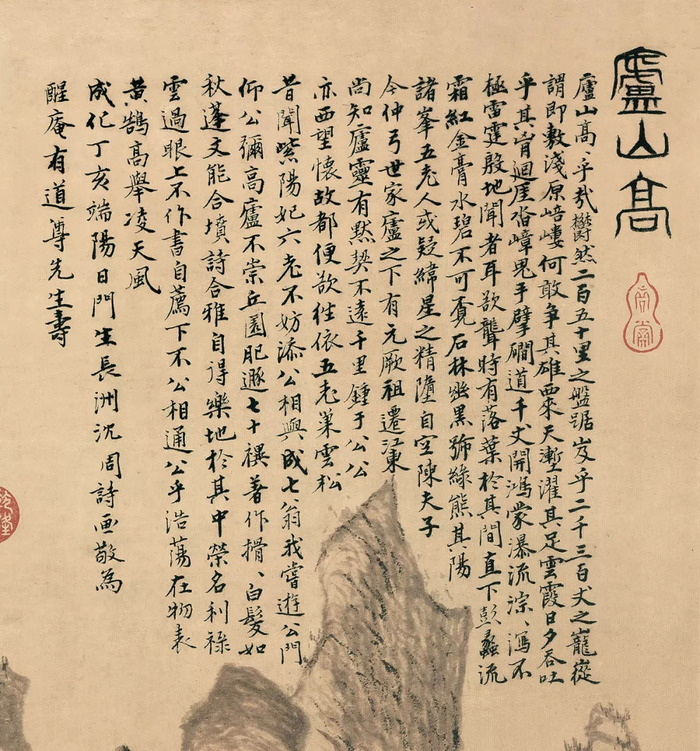 廬山高
廬山高、乎哉欝然二百五十里之盤踞岌乎二千三百丈之巃嵸
謂即敷淺原培嶁何敢爭其雄西來天塹濯其足雲霞日夕吞吐
乎其胷迴崖沓嶂鬼手擘磵道千丈開鴻蒙瀑流淙、瀉不
極雷霆殷地聞者耳欲聾時有落葉於其間直下彭蠡流
霜紅金膏水碧不可覔石林幽黑號綠熊其陽
諸峯五老人或疑緯星之精墮自空陳夫子
今仲弓世家廬之下有元厥祖遷江東
尚知廬靈有默契不遠千里鍾于公公
亦西望懷故都便欲往依五老巢雲松
昔聞紫陽妃六老不妨添公相與成七翁我嘗遊公門
仰公彌高廬不崇丘園肥遯七十禩著作搰、白髮如
秋蓬文能合墳詩合雅自得樂地於其中榮名利祿
雲過眼上不作書自薦下不公相通公乎浩蕩在物表
黃鵠高舉凌天風
成化丁亥端陽日門生長洲沈周詩画敬為
醒庵有道尊先生壽